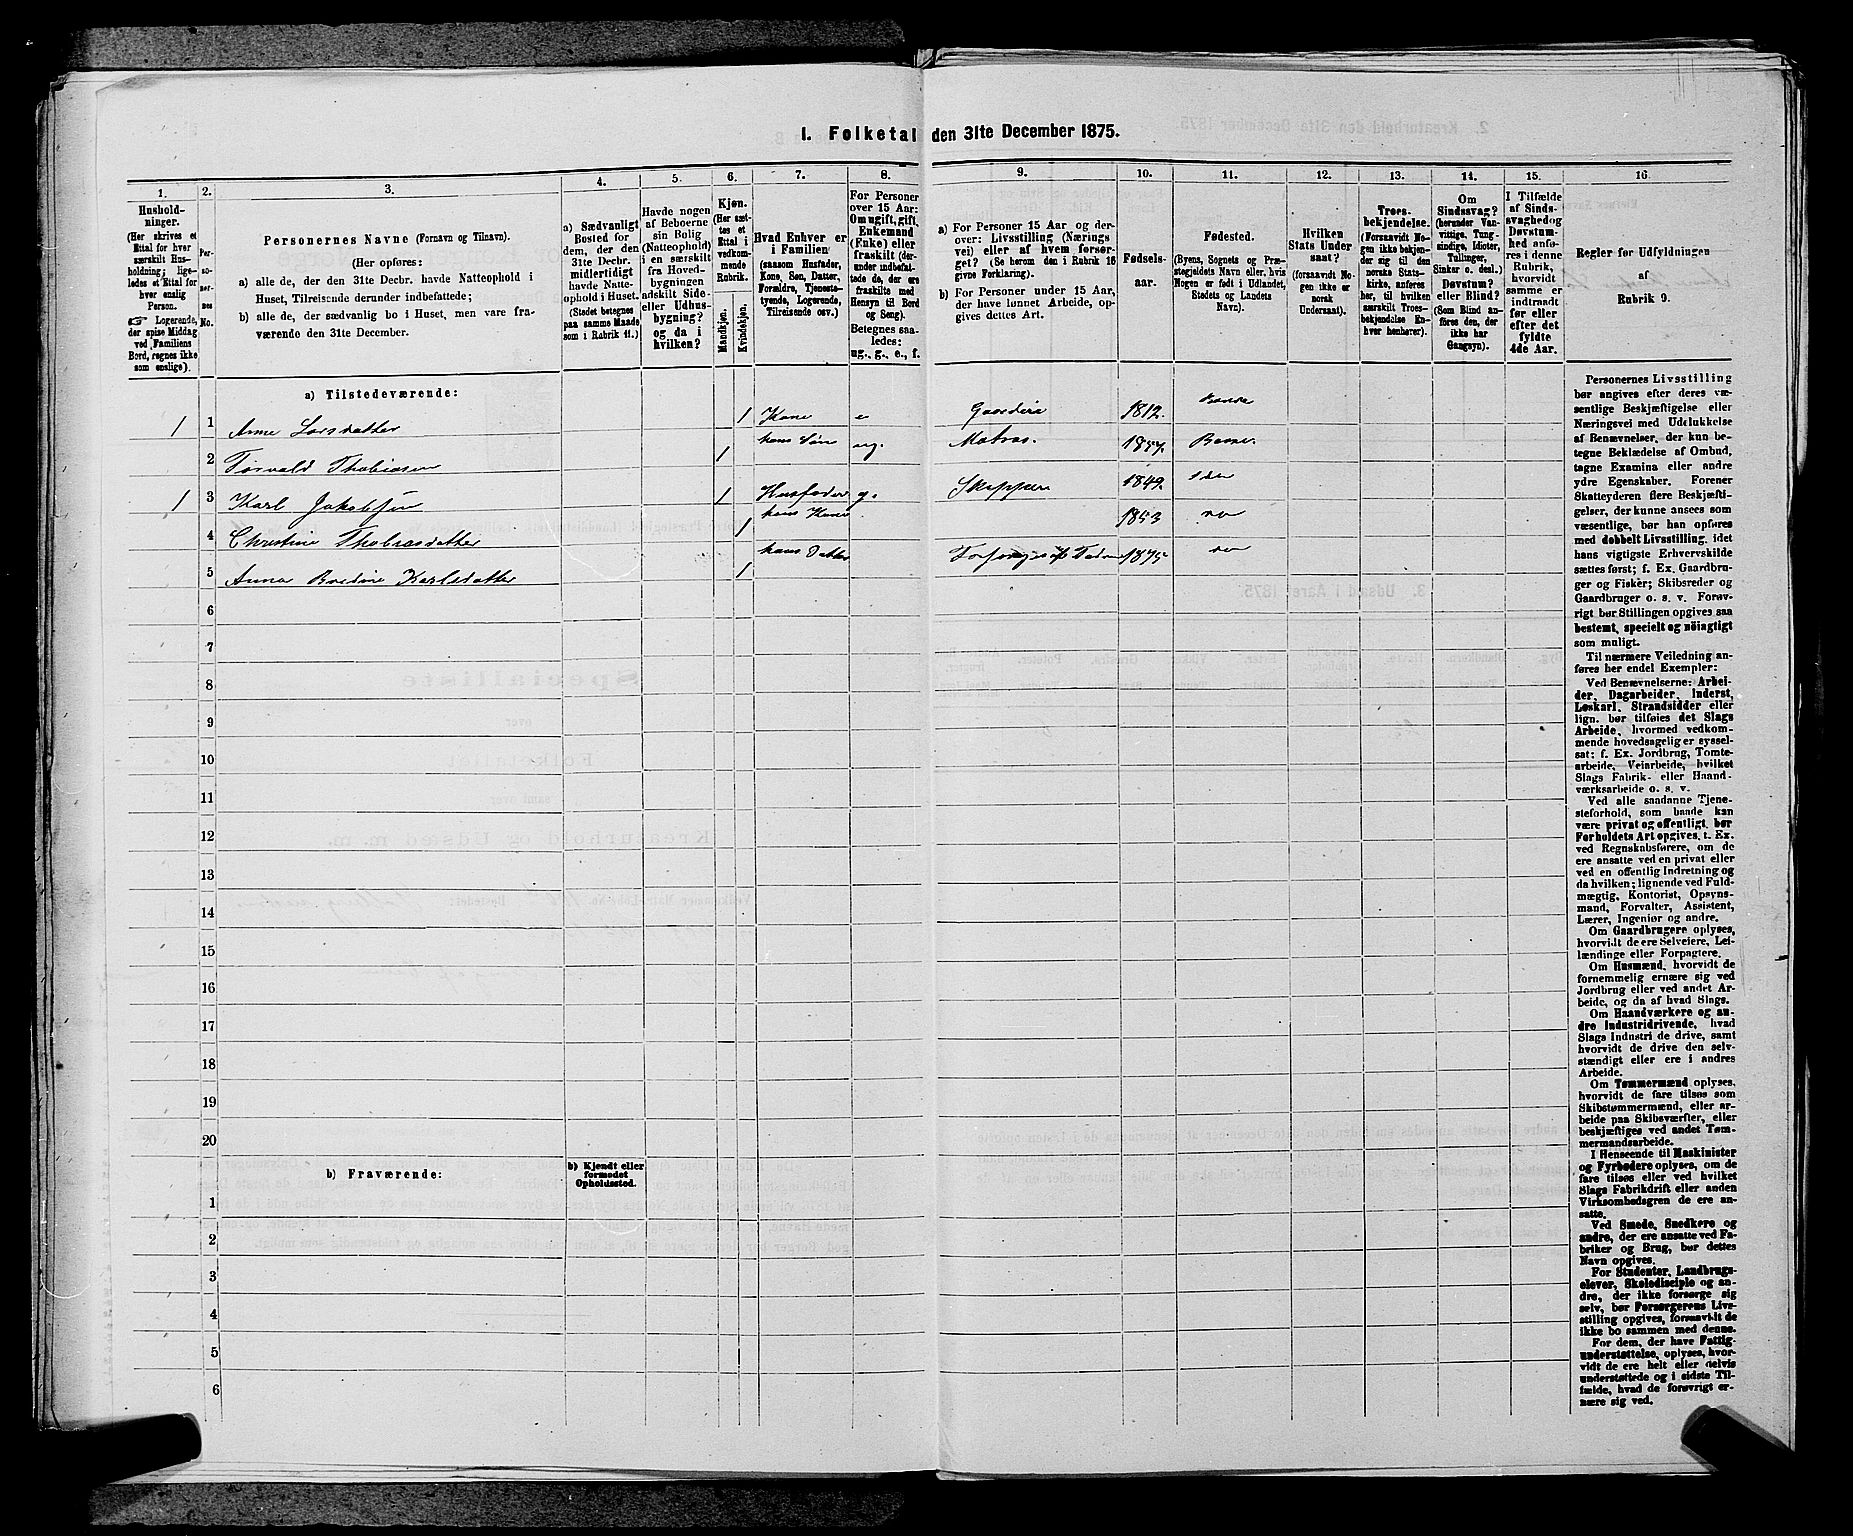 I. Folketal den 31te December 1875.
1.
2.
3.
4.
5.
6.
7.
8.
9.
10.
11.
12.
13.
14.
15.
16
Hushold-
ninger.
(Her skrives et
Ettal for hver
særskilt Hus-
holdning; lige-
ledes et Ettal for
hver enslig
Person.
☞ Logerende,
der spise Middag
ved Familiens
Bord, regnes ikke
som enslige).
Per-
so-
ner-
nes
No.
Personernes Navne (Fornavn og Tilnavn).
(Her opføres:
a) alle de, der den 31te Decbr. havde Natteophold i
Huset, Tilreisende derunder indbefattede;
b) alle de, der sædvanlig bo i Huset, men vare fra-
værende den 31te December.
a) Sædvanligt
Bosted for
dem, der den
31te Decbr.
midlertidigt
havde Natte-
ophold i Huset.
(Stedet betegnes
paa samme Maade
som i Rubrik 11.)
Havde nogen
af Beboerne
sin Bolig
(Natteophold)
i en særskilt
fra Hoved-
bygningen
adskilt Side-
eller Udhus-
bygning?
og da i
hvilken?
Kjøn.
(Her sæt-
tes et
Ettal i
vedkom-
mende
Rubrik.
Mandkjøn.
Kvindekjøn.
Hvad Enhver er
i Familien
(saasom Husfader,
Kone, Søn, Datter,
Forældre, Tjeneste-
tyende, Logerende,
Tilreisende osv.)
For Personer
over 15 Aar:
Om ugift, gift,
Enkemand
(Enke) eller
fraskilt (der-
under indbefat-
tede de, der ere
fraskilte med
Hensyn til Bord
og Seng).
Betegnes saa-
ledes:
ug., g., e., f.
a) For Personer 15 Aar og der-
over: Livsstilling (Nærings-
vei) eller af hvem forsør-
get? (Se herom den i Rubrik 16
givne Forklaring).
b) For Personer under 15 Aar,
der have lønnet Arbeide, op-
gives dettes Art.
Fødsels-
aar.
Fødested.
(Byens, Sognets og Præ-
stegjeldets Navn eller, hvis
Nogen er født i Udlandet,
Stedets og Landets
Navn).
Hvilken
Stats Under-
saat?
(forsaavidt No-
gen ikke er
norsk
Undersaat).
Troes-
bekjendelse.
(Forsaavidt No-
gen ikke bekjen-
der sig til den
norske Stats-
kirke, anføres
her, til hvilken
særskilt Troes-
bekjendelse En-
hver henhører).
Om
Sindssvag?
(herunder Van-
vittige, Tung-
sindige, Idioter,
Tullinger,
Sinker o. desl.)
Døvstum?
eller Blind?
(Som Blind an-
føres den, der
ikke har
Gangsyn).
I Tilfælde
af Sinds-
svaghed og
Døvstum-
hed anfø-
res i denne
Rubrik,
hvorvidt
samme er
indtraadt
før eller
efter det
fyldte
4de Aar.
Regler for Udfyldningen
af
Rubrik 9.
a) Tilstedeværende:
1 1 Anne Larsdatter 1 Kone e Gaardeie 1812.
2 Torvald Thobiasen 1 hans Søn ug. Matros. 1857.
1 3 Karl Jakobsen 1 Husfader g. Skipper 1849.
4 Christine Thobiasdatter 1 hans Kone 1853
5 Anna Karlsdatter 1 hans Datter 1875
6
7
8
9
10
11
12
13
14
15
16
17
18
19
20
b) Fraværende:
b) Kjendt eller
formodet
Opholdssted.
1
2
3
4
5
6
Personernes Livsstilling
bør angives efter deres væ-
sentlige Beskjæftigelse eller
Næringsvei med Udelukkelse
af Benævnelser, der kun be-
tegne Beklædelse af Ombud,
tagne Examina eller andre
ydre Egenskaber. Forener
Skatteyderen flere Beskjæfti-
gelser, der kunne ansees som
væsentlige, bør han opføres
med dobbelt Livsstilling, idet
hans vigtigste Erhvervskilde
sættes først; f. Ex. Gaardbru-
ger og Fisker; Skibsreder og
Gaardbruger o. s. v. Forøv-
rigt bør Stillingen opgives saa
bestemt, specielt og nøiagtigt
som muligt.
Til nærmere Veiledning an-
føres her endel Exempler:
Ved Benævnelserne: Arbei-
der, Dagarbeider, Inderst,
Løskarl, Strandsidder eller
lign. bør tilføies det Slags
Arbeide, hvormed vedkom-
mende hovedsagelig er syssel-
sat; f. Ex. Jordbrug, Tomte-
arbeide, Veiarbeide, hvilket
Slags Fabrik- eller Haand-
værksarbeide o. s. v.
Ved alle saadanne Tjene-
steforhold, som baade kan
være privat og offentligt, bør
Forholdets Art opgives, t. Ex.
ved Regnskabsførere, om de
ere ansatte ved en privat eller
ved en offentlig Indretning og
da hvilken; lignende ved Fuld-
mægtig, Kontorist, Opsyns-
mand, Forvalter, Assistent,
Lærer, Ingeniør og andre.
Om Gaardbrugere oplyses,
hvorvidt de ere Selveiere, Lei-
lændinge eller Forpagtere.
Om Husmænd, hvorvidt de
fornemmelig ernære sig ved
Jordbrug eller ved andet Ar-
beide, og da af hvad Slags.
Om Haandværkere og an-
dre Industridrivende, hvad
Slags Industri de drive, samt
hvorvidt de drive den selv-
stændigt eller ere i andres
Arbeide.
Om Tømmermænd oplyses,
hvorvidt de fare tilsøs som
Skibstømmermænd, eller ar-
beide paa Skibsværfter, eller
beskjæftiges ved andet Tøm-
mermandsarbeide.
I Henseende til Maskinister
og Fyrbødere oplyses, om de
fare tilsøs eller ved hvilket
Slags Fabrikdrift eller anden
Virksomhedsgren de ere an-
satte.
Ved Smede, Snedkere og
andre, der ere ansatte ved Fa-
briker og Brug, bør dettes
Navn opgives.
For Studenter, Landbrugs-
elever, Skoledisciple og an-
dre, der ikke forsørge sig
selv, bør Forsørgerens Livs-
stilling opgives, forsaavidt de
ikke bo sammen med denne.
For dem, der have Fattig-
understøttelse, oplyses, hvor-
vidt de ere helt eller delvis
understøttede og i sidste Til-
fælde, hvad de forøvrigt er-
nære sig ved.